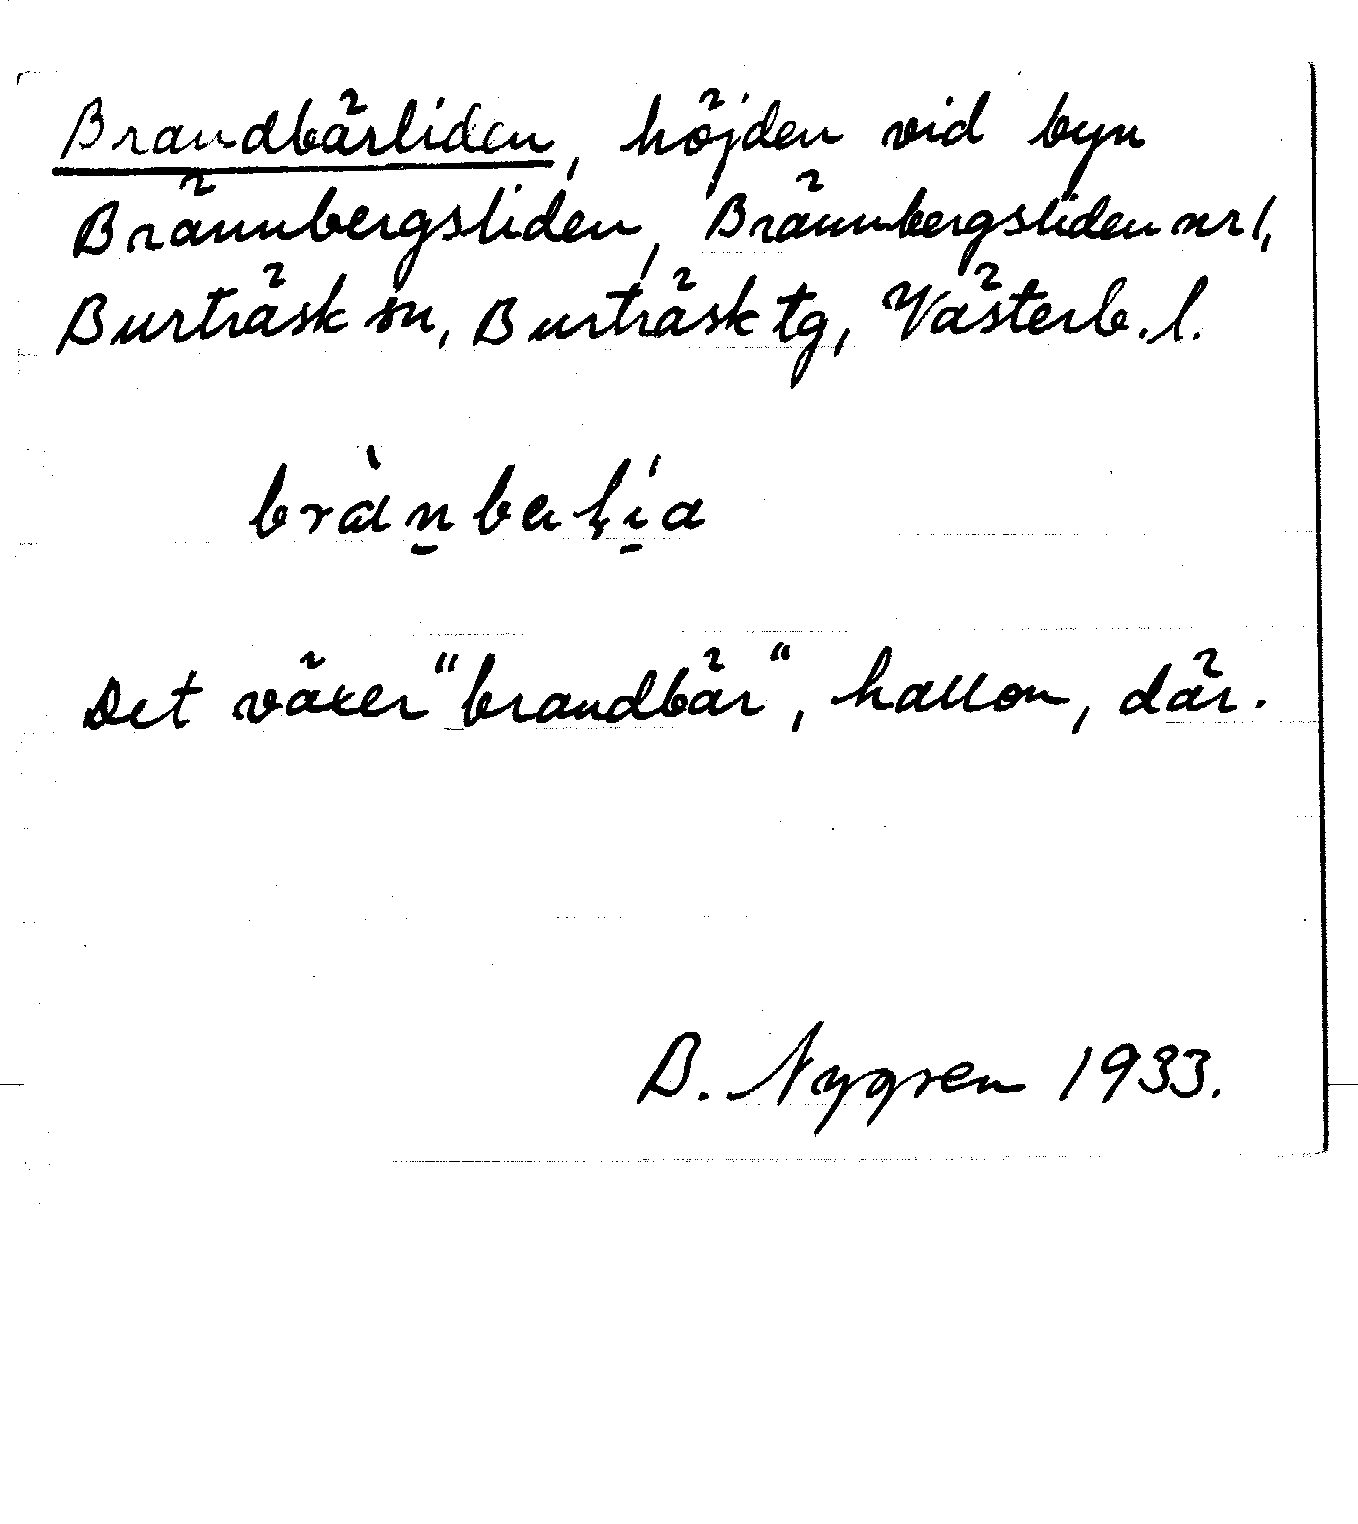 Brandbärliden, höjden vid byn
Brännbergsliden, Brännbergsliden nr 1,
Burträsk sn, Burträsk tg, Västerb. l.
Det växer "brandbär", hallon, där.
B. Nygren 1933.